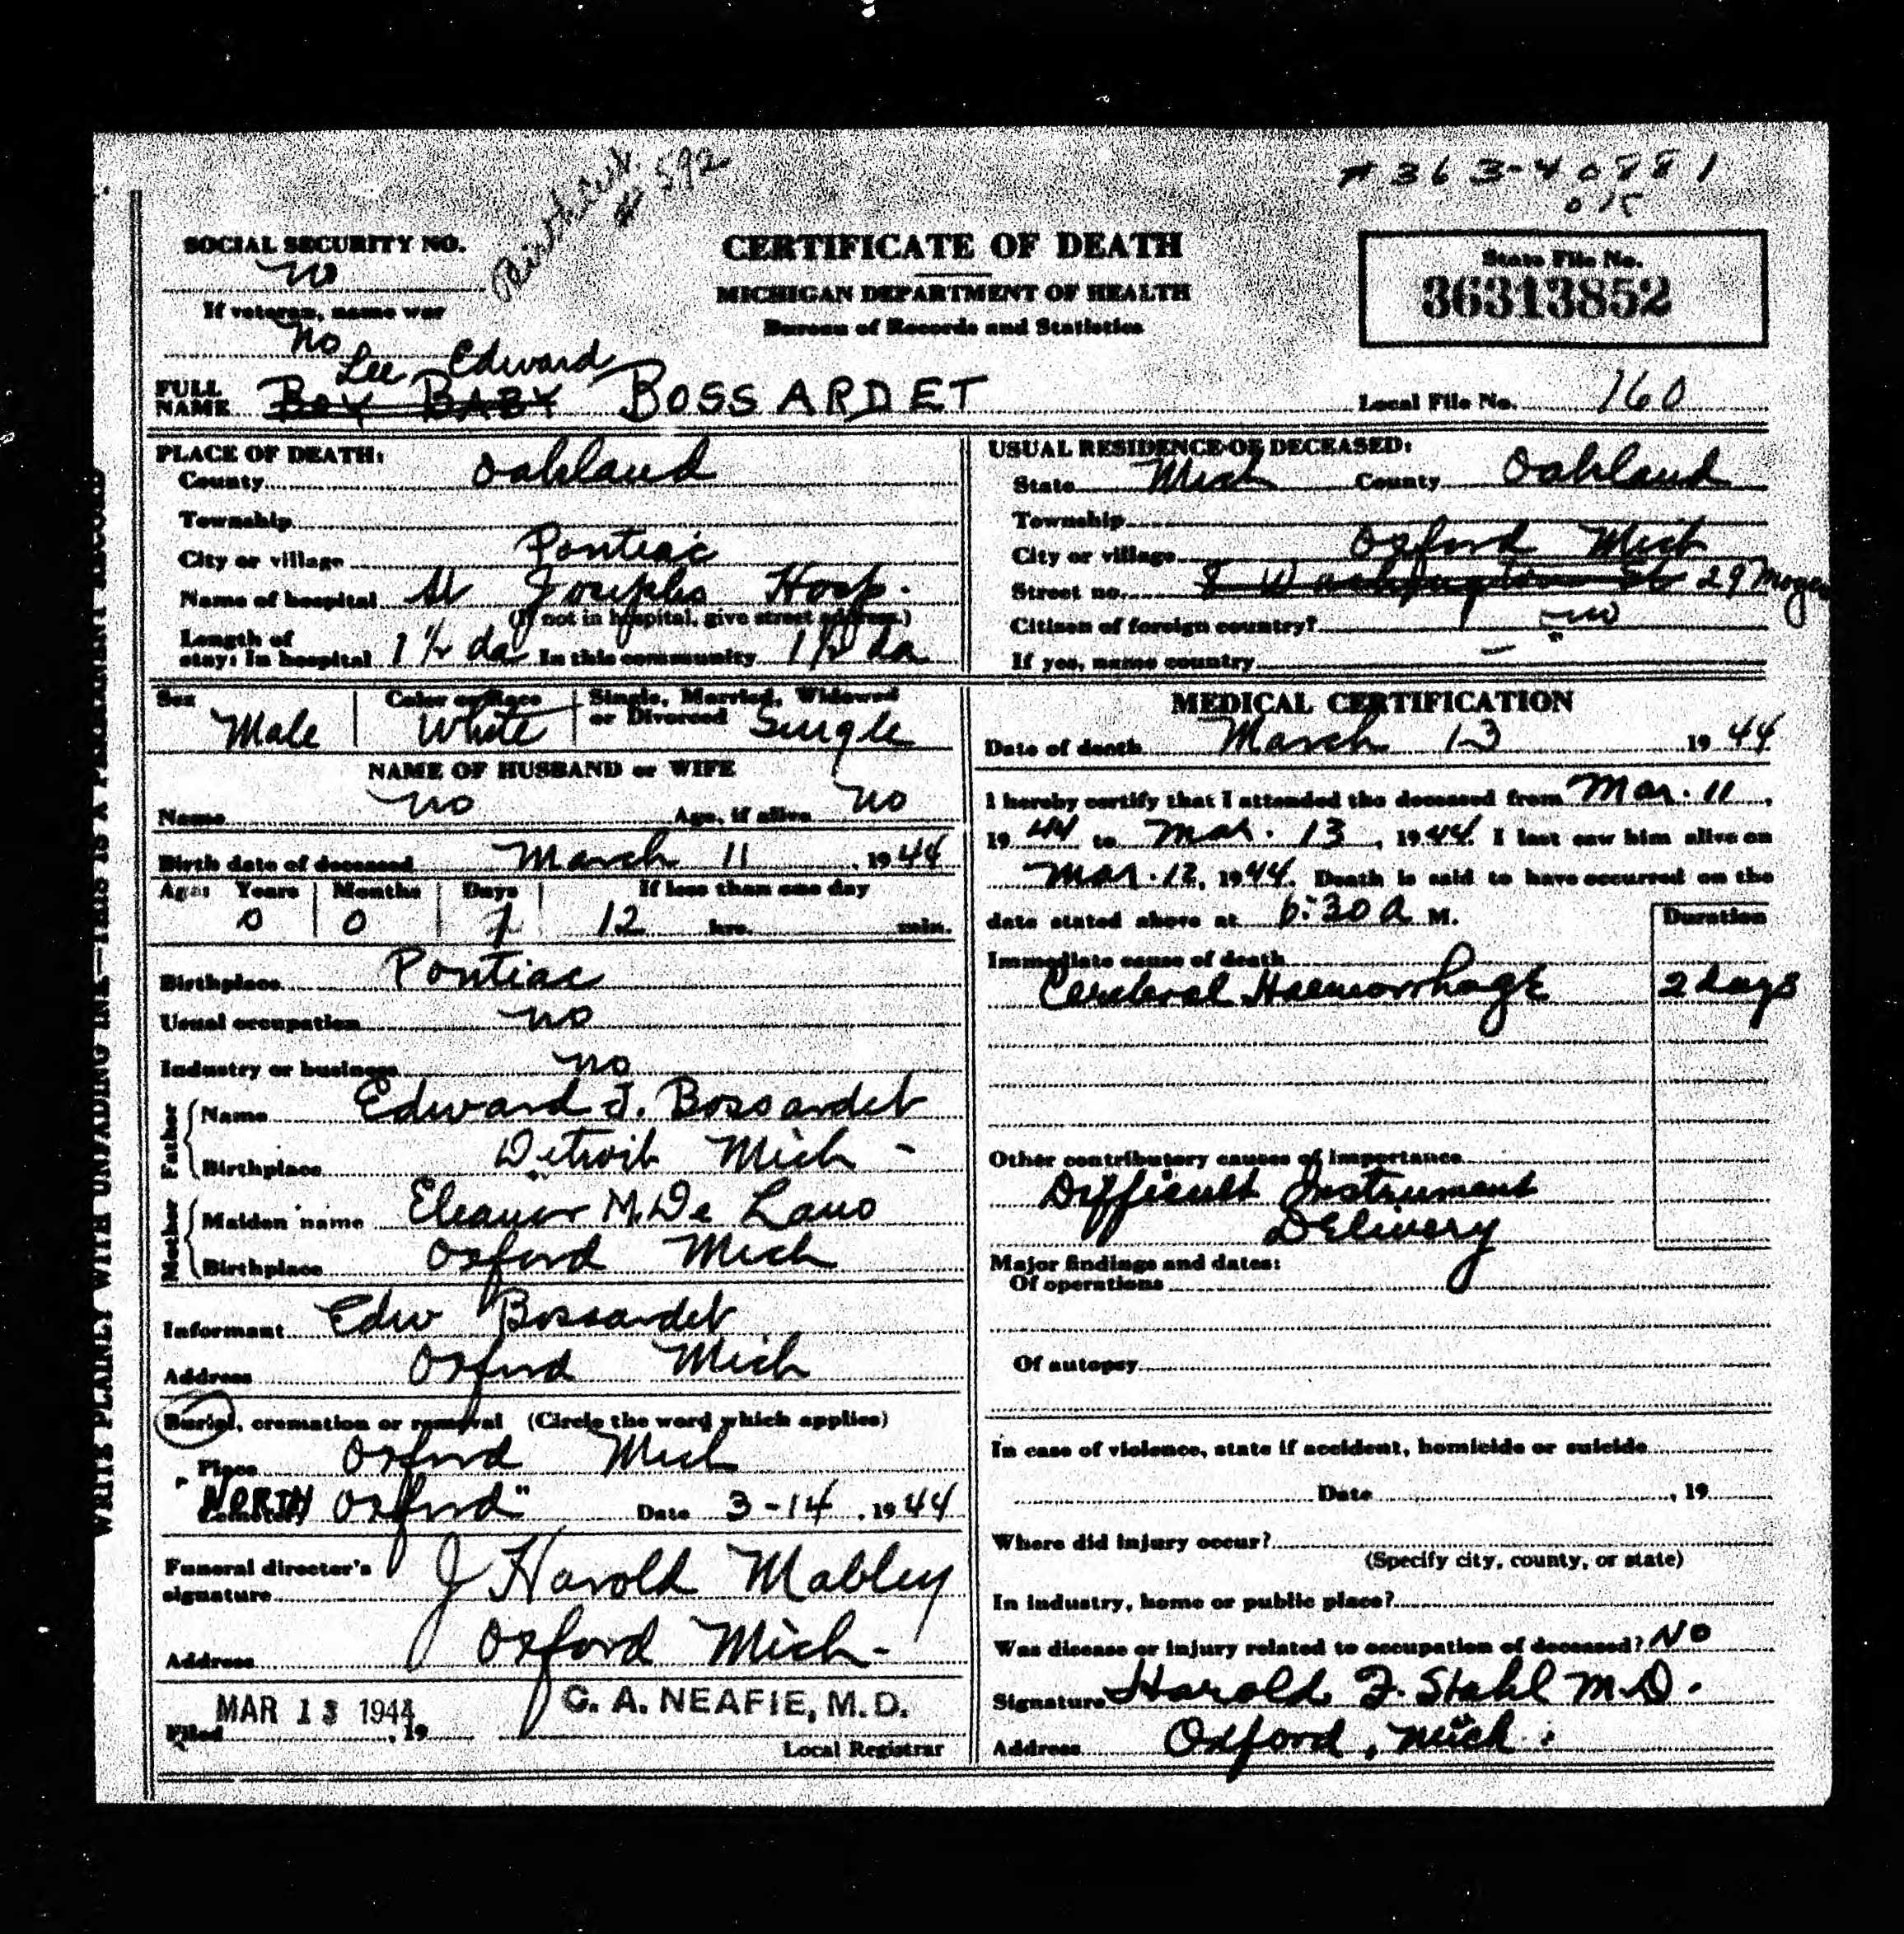 Birth Cert.
# 592
# 363-40881
015
SOCIAL SECURITY NO.
no
If veteran, name war
no
CERTIFICATE OF DEATH
MICHIGAN DEPARTMENT OF HEALTH
Bureau of Records and Statistics
State File No.
36313852
Lee Edward
FULL NAME BOY BABY BOSSARDET
Local File No. 160
PLACE OF DEATH:
County Oakland
Township
City or village Pontiac
Name of hospital St Josephs Hosp.
(If not in hospital, give street address.)
Length of
stay: In hospital 1 1/2 da In this community 1 1/2 da
USUAL RESIDENCE OF DECEASED:
State Mich County Oakland
Township
City or village Oxford Mich
Street no. 8 Washington St 29 Moyer
Citizen of foreign country? no
If yes, name country
Sex Male
Color or Race White
Single, Married, Widowed
or Divorced Single
NAME OF HUSBAND or WIFE
Name no Age, if alive no
Birth date of deceased March 11, 1944
Age: Years Months Days If less than one day
0 0 1 12 hrs. min.
Birthplace Pontiac
Usual occupation no
Industry or business no
Father
Name Edward J. Bossardet
Birthplace Detroit Mich -
Mother
Maiden name Eleanor M. De Lano
Birthplace Oxford Mich
Informant Edw Bossardet
Address Oxford Mich
Burial, cremation or removal (Circle the word which applies)
Place Oxford Mich
Cemetery "NORTH Oxford" Date 3-14, 1944
Funeral director's
signature J Harold Mabley
Address Oxford Mich-
Filed MAR 13 1944, 19
C. A. NEAFIE, M.D.
Local Registrar
MEDICAL CERTIFICATION
Date of death March 13 1944
I hereby certify that I attended the deceased from Mar. 11,
1944 to Mar. 13, 1944. I last saw him alive on
Mar. 12, 1944. Death is said to have occurred on the
date stated above at 6:30 A M.
Duration
Immediate cause of death
Cerebral Haemorrhage 2 days
Other contributory causes of importance
Difficult Instrument
Delivery
Major findings and dates:
Of operations
Of autopsy
In case of violence, state if accident, homicide or suicide
Date , 19
Where did injury occur?
(Specify city, county, or state)
In industry, home or public place?
Was disease or injury related to occupation of deceased? NO
Signature Harold F. Stahl M.D.
Address Oxford, Mich.
WRITE PLAINLY WITH UNFADING INK—THIS IS A PERMANENT RECORD